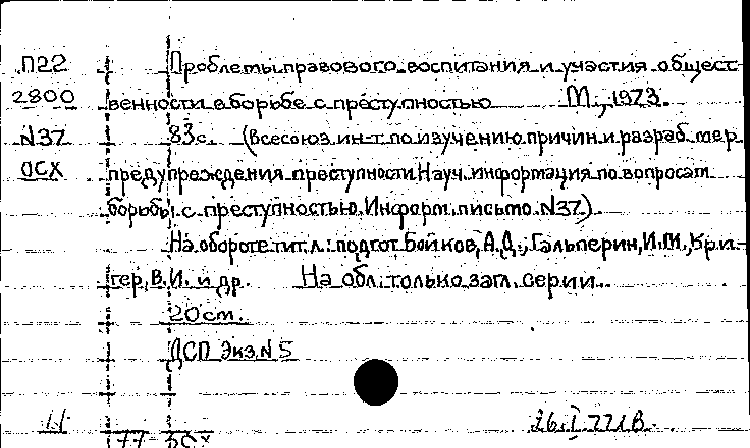 П22 Проблемы правового воспитания и участия общест-
2800 венности в борьбе с преступностью М., 1973.
N37 83с. (Всесоюз. ин-т по изучению причин и разраб. мер
ОСХ предупреждения преступности. Науч. информация по вопросам
борьбы с преступностью. Информ. письмо. N37).
На обороте тит. л.: подгот. Бойков, А.Д., Гальперин, И.М., Кри-
гер, В.И. и др. На обл. только загл. серии.
20 см.
ДСП Экз. N 5